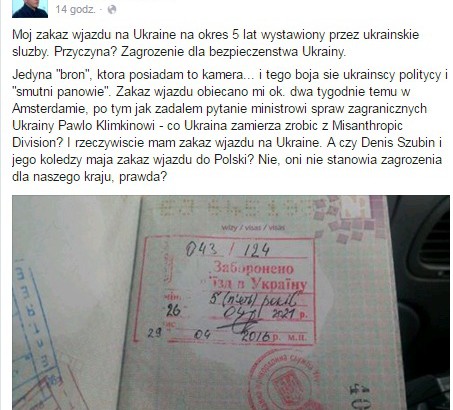 14 godz. ·
Moj zakaz wjazdu na Ukraine na okres 5 lat wystawiony przez ukrainskie
sluzby. Przyczyna? Zagrozenie dla bezpieczenstwa Ukrainy.
Jedyna "bron", ktora posiadam to kamera... i tego boja sie ukrainscy politycy i
"smutni panowie". Zakaz wjazdu obiecano mi ok. dwa tygodnie temu w
Amsterdamie, po tym jak zadalem pytanie ministrowi spraw zagranicznych
Ukrainy Pawlo Klimkinowi - co Ukraina zamierza zrobic z Misanthropic
Division? I rzeczywiscie mam zakaz wjazdu na Ukraine. A czy Denis Szubin i
jego koledzy maja zakaz wjazdu do Polski? Nie, oni nie stanowia zagrozenia
dla naszego kraju, prawda?
wizy / visas / visas
043 / 124
Заборонено
їзд в Україну
5 (п'ять) років
26 04 2021 р.
29 04 2016 р. м.п.